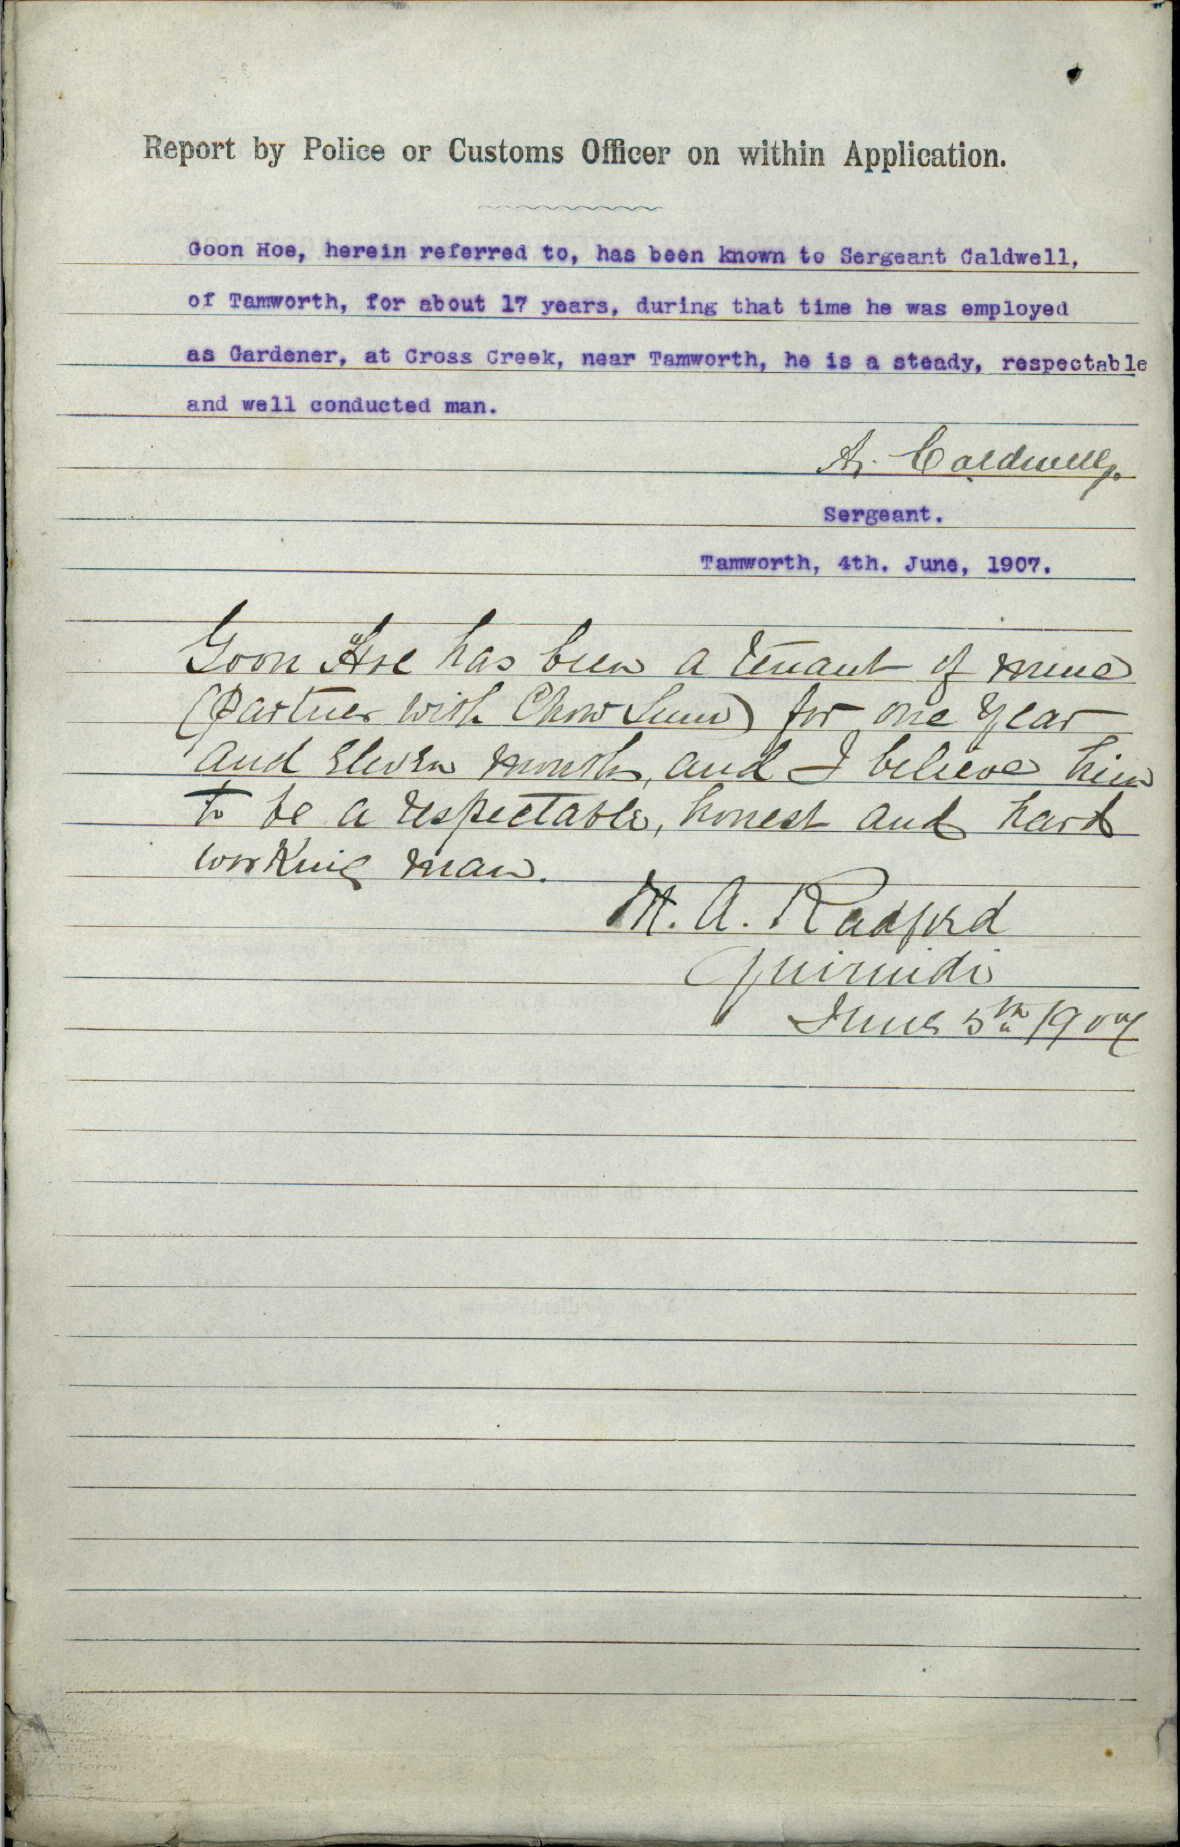 Report by Police or Customs Officer on within Application.
Goon Hoe, herein referred to, has been known to Sergeant Caldwell,
of Tamworth, for about 17 years, during that time he was employed
as Gardener, at Cross Creek, near Tamworth, he is a steady, respectable
and well conducted man.
A. Caldwell
Sergeant.
Tamworth, 4th. June, 1907.
Goon Hoe has been a tenant of mine
(Partner with Chow Sum) for one year
and eleven months, and I believe him
to be a respectable, honest and hard
working man.
M. A. Radford
Quirindi
June 5th 1907